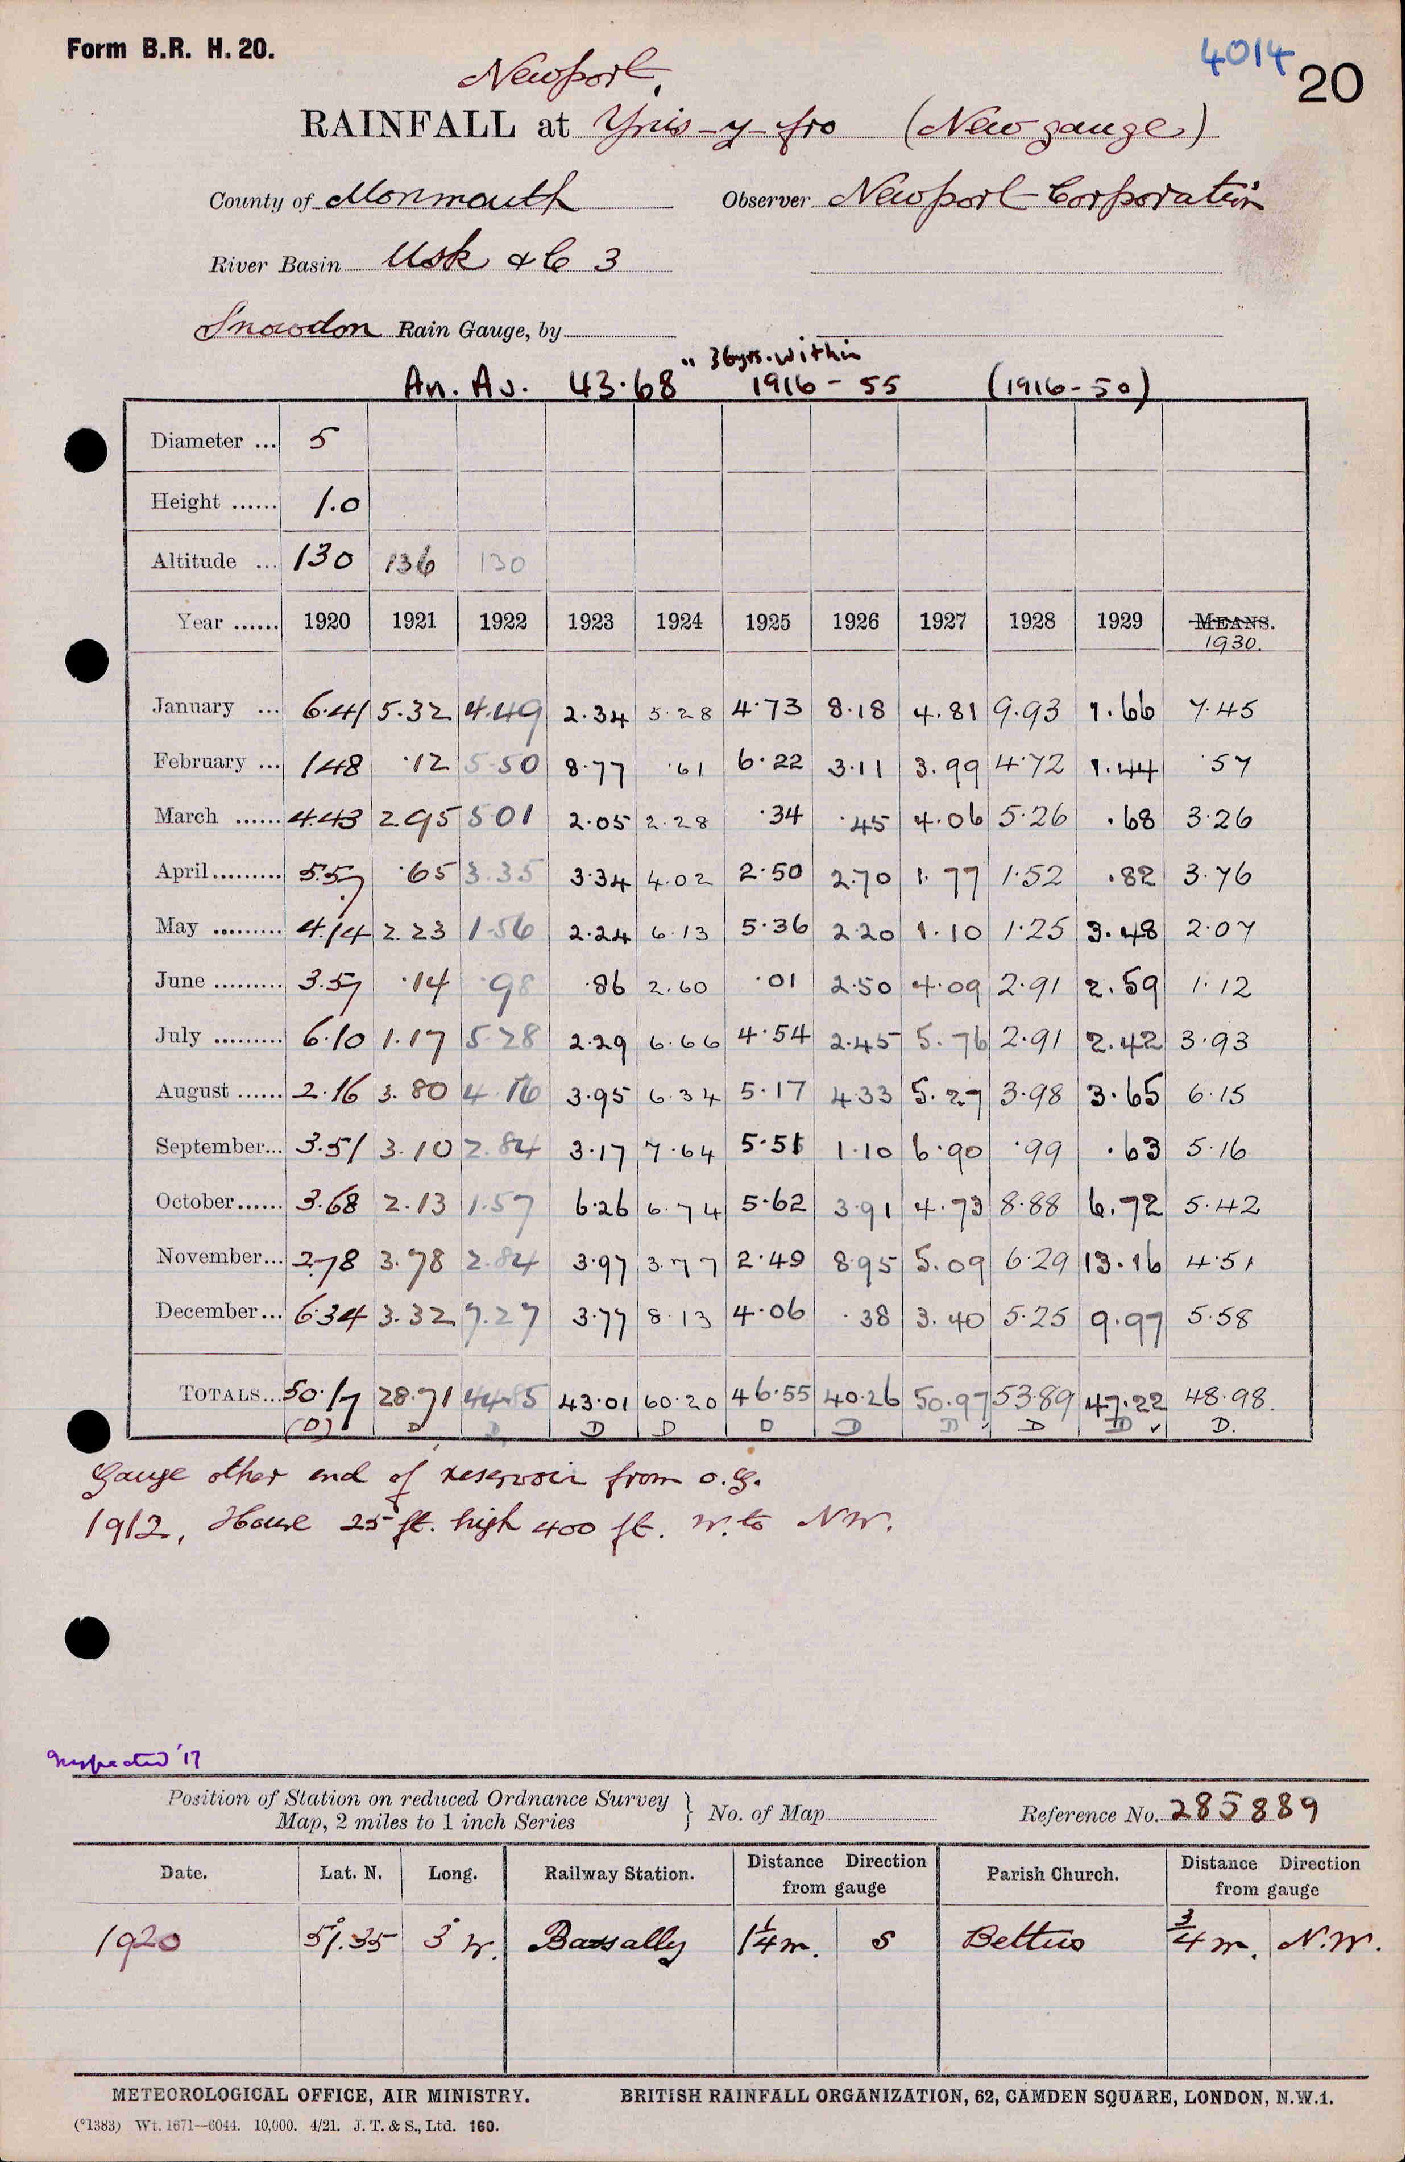 Form B.R. H. 20.
4014
20
Newport,
RAINFALL at Ynis-y-fro (New gauge)
County of Monmouth Observer Newport Corporation
River Basin Usk & C 3
Snowdon Rain Gauge, by
An. Av. 43.68" 36yrs. within 1916-55 (1916-50)
Diameter ... 5
Height ...... 1.0
Altitude ... 130 136 130
Year ...... 1920 1921 1922 1923 1924 1925 1926 1927 1928 1929 MEANS.
1930.
January ... 6.41 5.32 4.49 2.34 5.28 4.73 8.18 4.81 9.93 1.66 7.45
February ... 1.48 .12 5.50 8.77 .61 6.22 3.11 3.99 4.72 1.44 .57
March ...... 4.43 2.95 5.01 2.05 2.28 .34 .45 4.06 5.26 .68 3.26
April......... 5.57 .65 3.35 3.34 4.02 2.50 2.70 1.77 1.52 .82 3.76
May ......... 4.14 2.23 1.56 2.24 6.13 5.36 2.20 1.10 1.25 3.48 2.07
June ......... 3.57 .14 .98 .86 2.60 .01 2.50 4.09 2.91 2.59 1.12
July ......... 6.10 1.17 5.28 2.29 6.66 4.54 2.45 5.76 2.91 2.42 3.93
August ...... 2.16 3.80 4.16 3.95 6.34 5.17 4.33 5.27 3.98 3.65 6.15
September... 3.51 3.10 2.84 3.17 7.64 5.51 1.10 6.90 .99 .63 5.16
October...... 3.68 2.13 1.57 6.26 6.74 5.62 3.91 4.73 8.88 6.72 5.42
November... 2.78 3.78 2.84 3.97 3.77 2.49 8.95 5.09 6.29 13.16 4.51
December... 6.34 3.32 7.27 3.77 8.13 4.06 .38 3.40 5.25 9.97 5.58
TOTALS... 50.17 28.71 44.85 43.01 60.20 46.55 40.26 50.97 53.89 47.22 48.98
(D) D D D D D D D ✓ D D ✓ D.
Gauge other end of reservoir from o.g.
1912, House 25 ft. high 400 ft. W. to NW.
Inspected '17
Position of Station on reduced Ordnance Survey
Map, 2 miles to 1 inch Series } No. of Map Reference No. 285889
Date. Lat. N. Long. Railway Station. Distance Direction from gauge Parish Church. Distance Direction from gauge
1920 51°.35 3° W. Bassally 1¼ m. S Bettus ¾ m. N.W.
METEOROLOGICAL OFFICE, AIR MINISTRY. BRITISH RAINFALL ORGANIZATION, 62, CAMDEN SQUARE, LONDON, N.W.1.
(*1383) Wt. 1671—6044. 10,000. 4/21. J. T. & S., Ltd. 160.